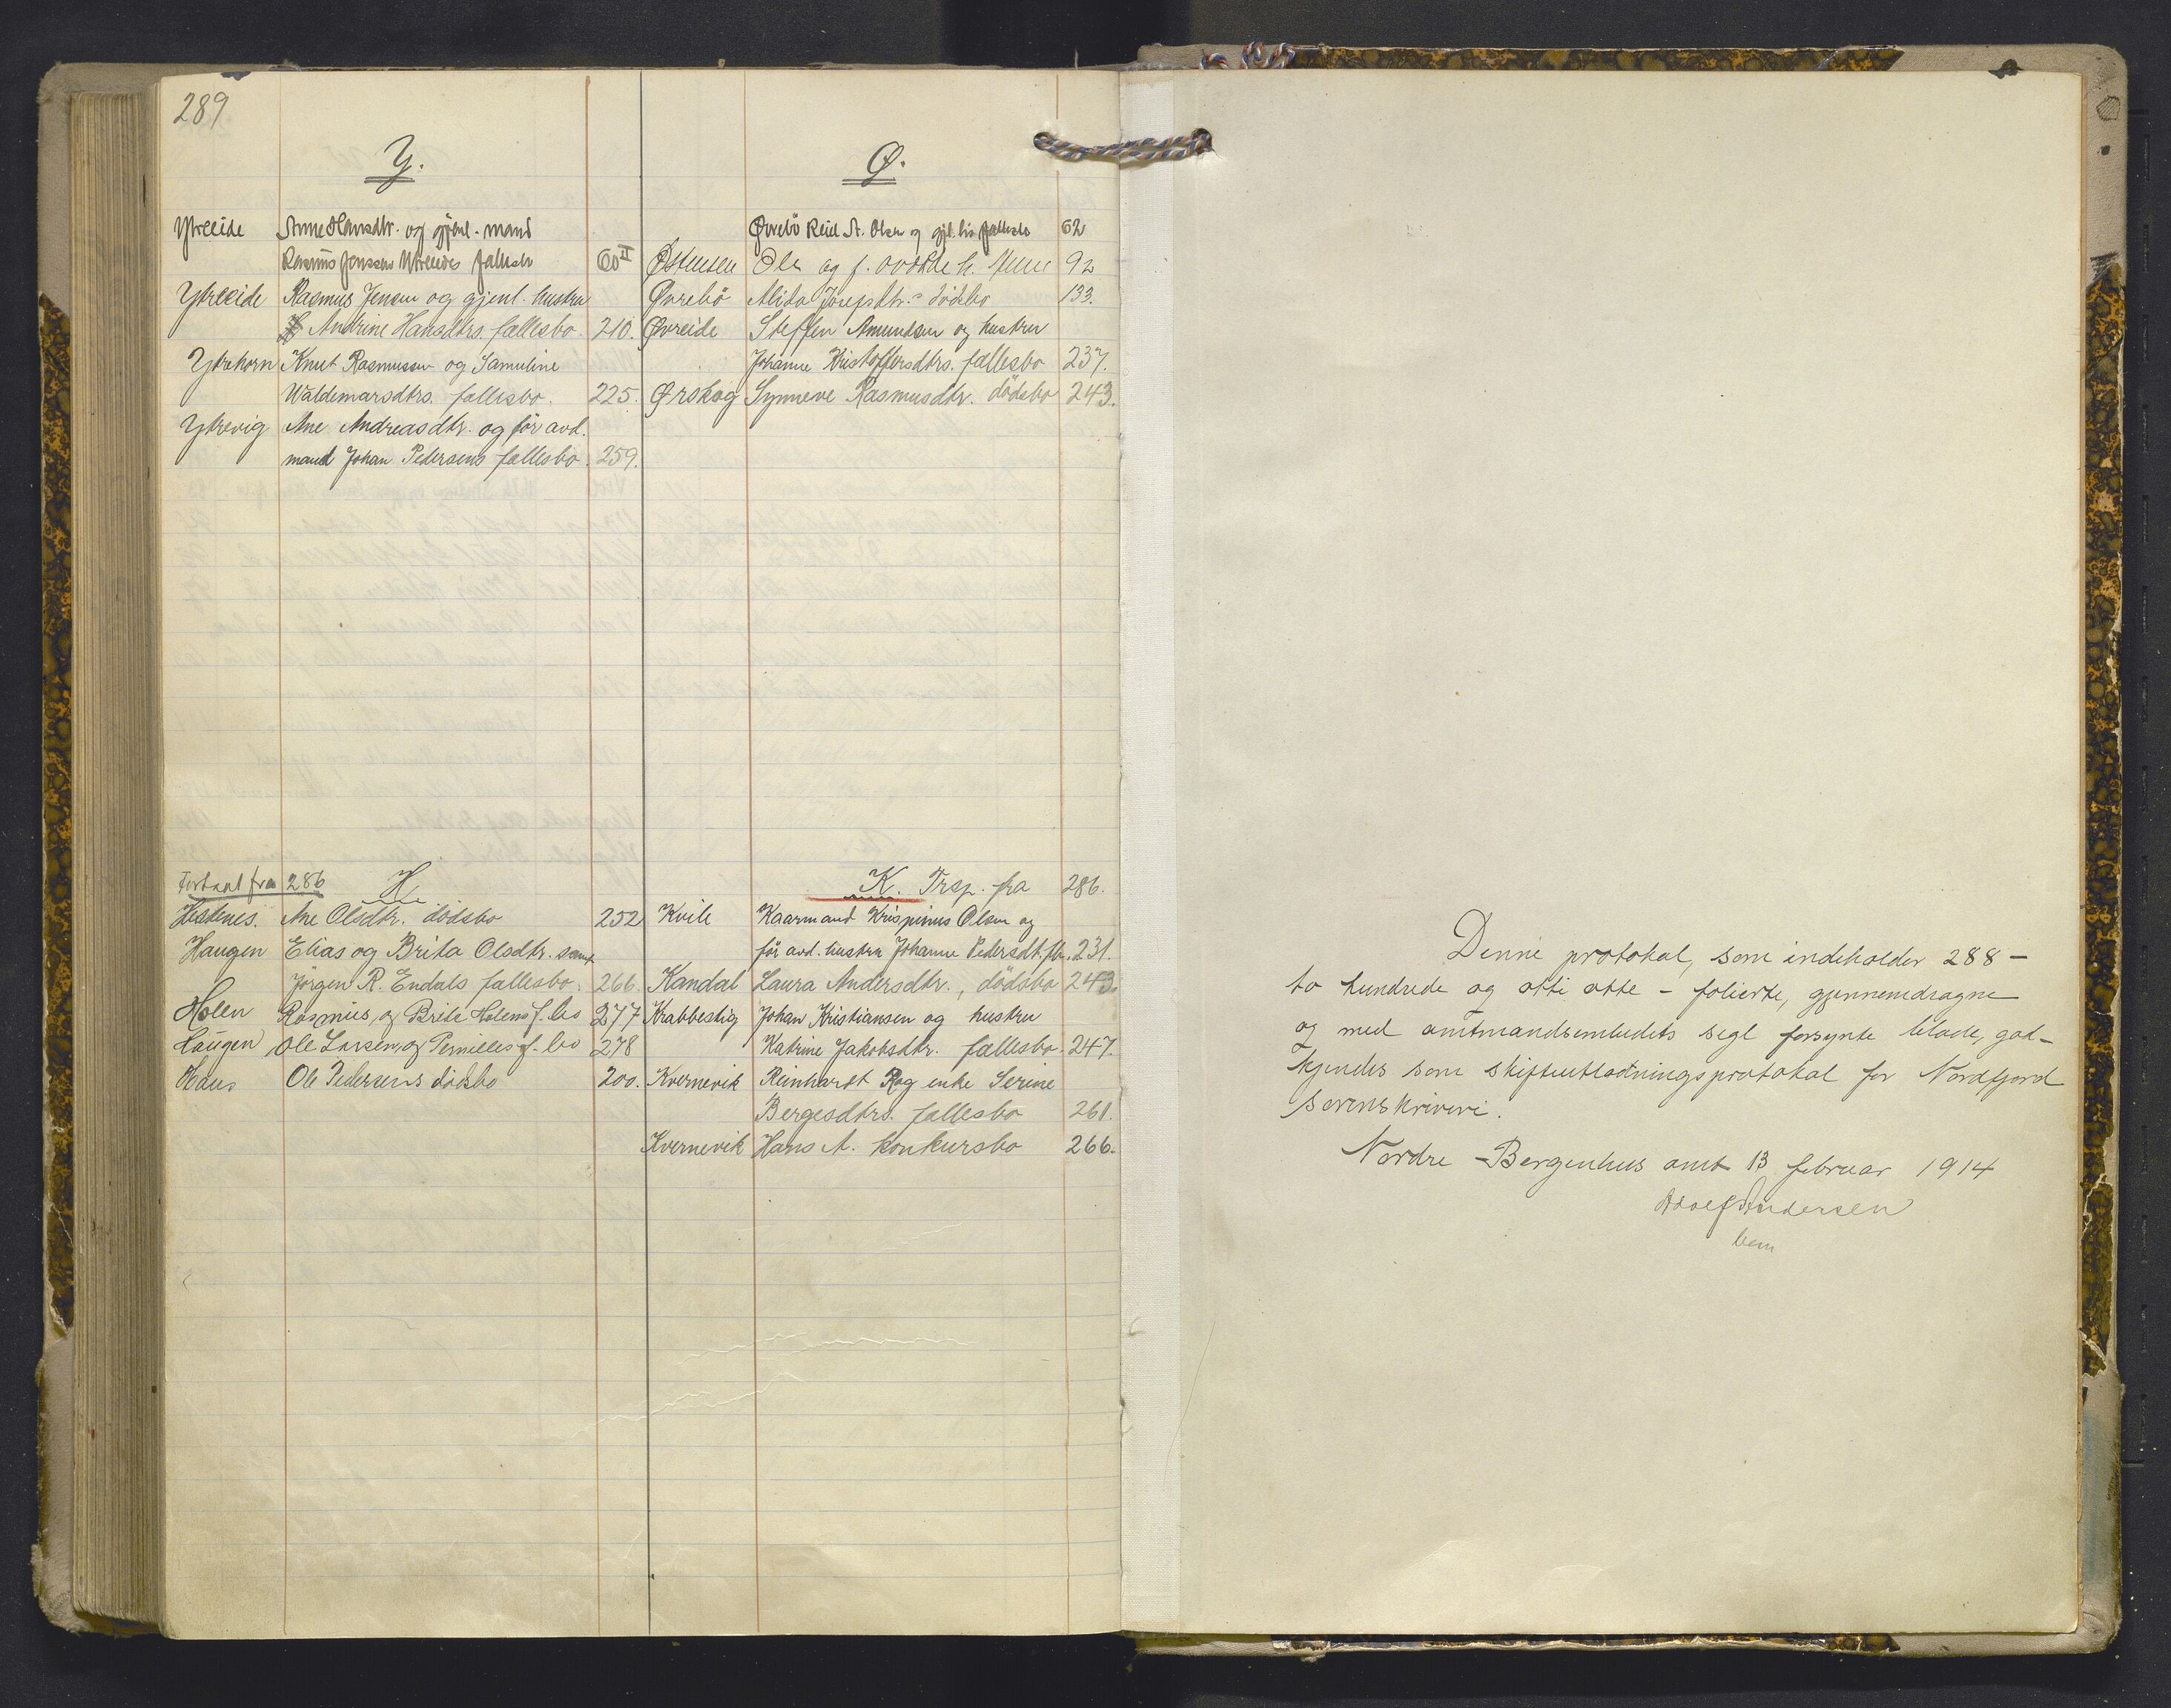 289
Y.
Ytreeide Anne Hansdtr. og gjenl. mand
Rasmus Jenssen Ytreeides fallesbo 60 II
Ytreeide Rasmus Jensen og gjenl. hustru
Andrine Hansdtrs. fællesbo. 210.
Ytrehorn Knut Rasmussen og Samuline
Waldemarsdtrs. fallesbo. 225.
Ytrevig Ane Andreasdtr. og før avd.
mand Johan Pedersens fællesbo. 259.
Ø.
Øvrebö Reiel A. Olsen og gjl. fællesbo 62
Østensen Ole og f. h. 92
Øvrebö Alida Josefsdtr.s dödsbo 133.
Øvreide Steffen Amundsen og hustru
Johanne Kristoffersdtrs. fællesbo 237.
Ørskog Synneve Rasmusdtr. dödsbo 243.
Fortsat fra 286 H
Hestenes. Ane Olsdtr. dödsbo 252
Haugen Elias og Brita Olsdtr. samt
Jörgen R. Endals fallesbo. 266.
Holen Rasmus, og Brite Holens f. bo 277
Haugen Ole Larsen, og Pernilles f. bo 278
Ole Pedersens dödsbo 200.
K. Trsp. fra 286.
Kvile Kaarmand Krispinus Olsen og
før avd. hustru Johanne Pedersdt. flb. 231.
Kandal Laura Andersdtr., dødsbo 243.
Krabbestig Johan Kristiansen og hustru
Katrine Jakobsdtr. fællesbo. 247.
Kvernevik Reinhardt R og enke Serine
Bergesdtrs. fallesbo 261.
Kvernevik Hans A. konkursbo 266.
Denne protokol, som indeholder 288 –
to hundrede og otti otte – folierte, gjennemdragne
og med amtmandsembedets segl forsynte blade, god-
kjendes som skifteutlodningsprotokol for Nordfjord
sorenskriveri.
Nordre Bergenhus amt 13 februar 1914
Adolf Andersen
bem